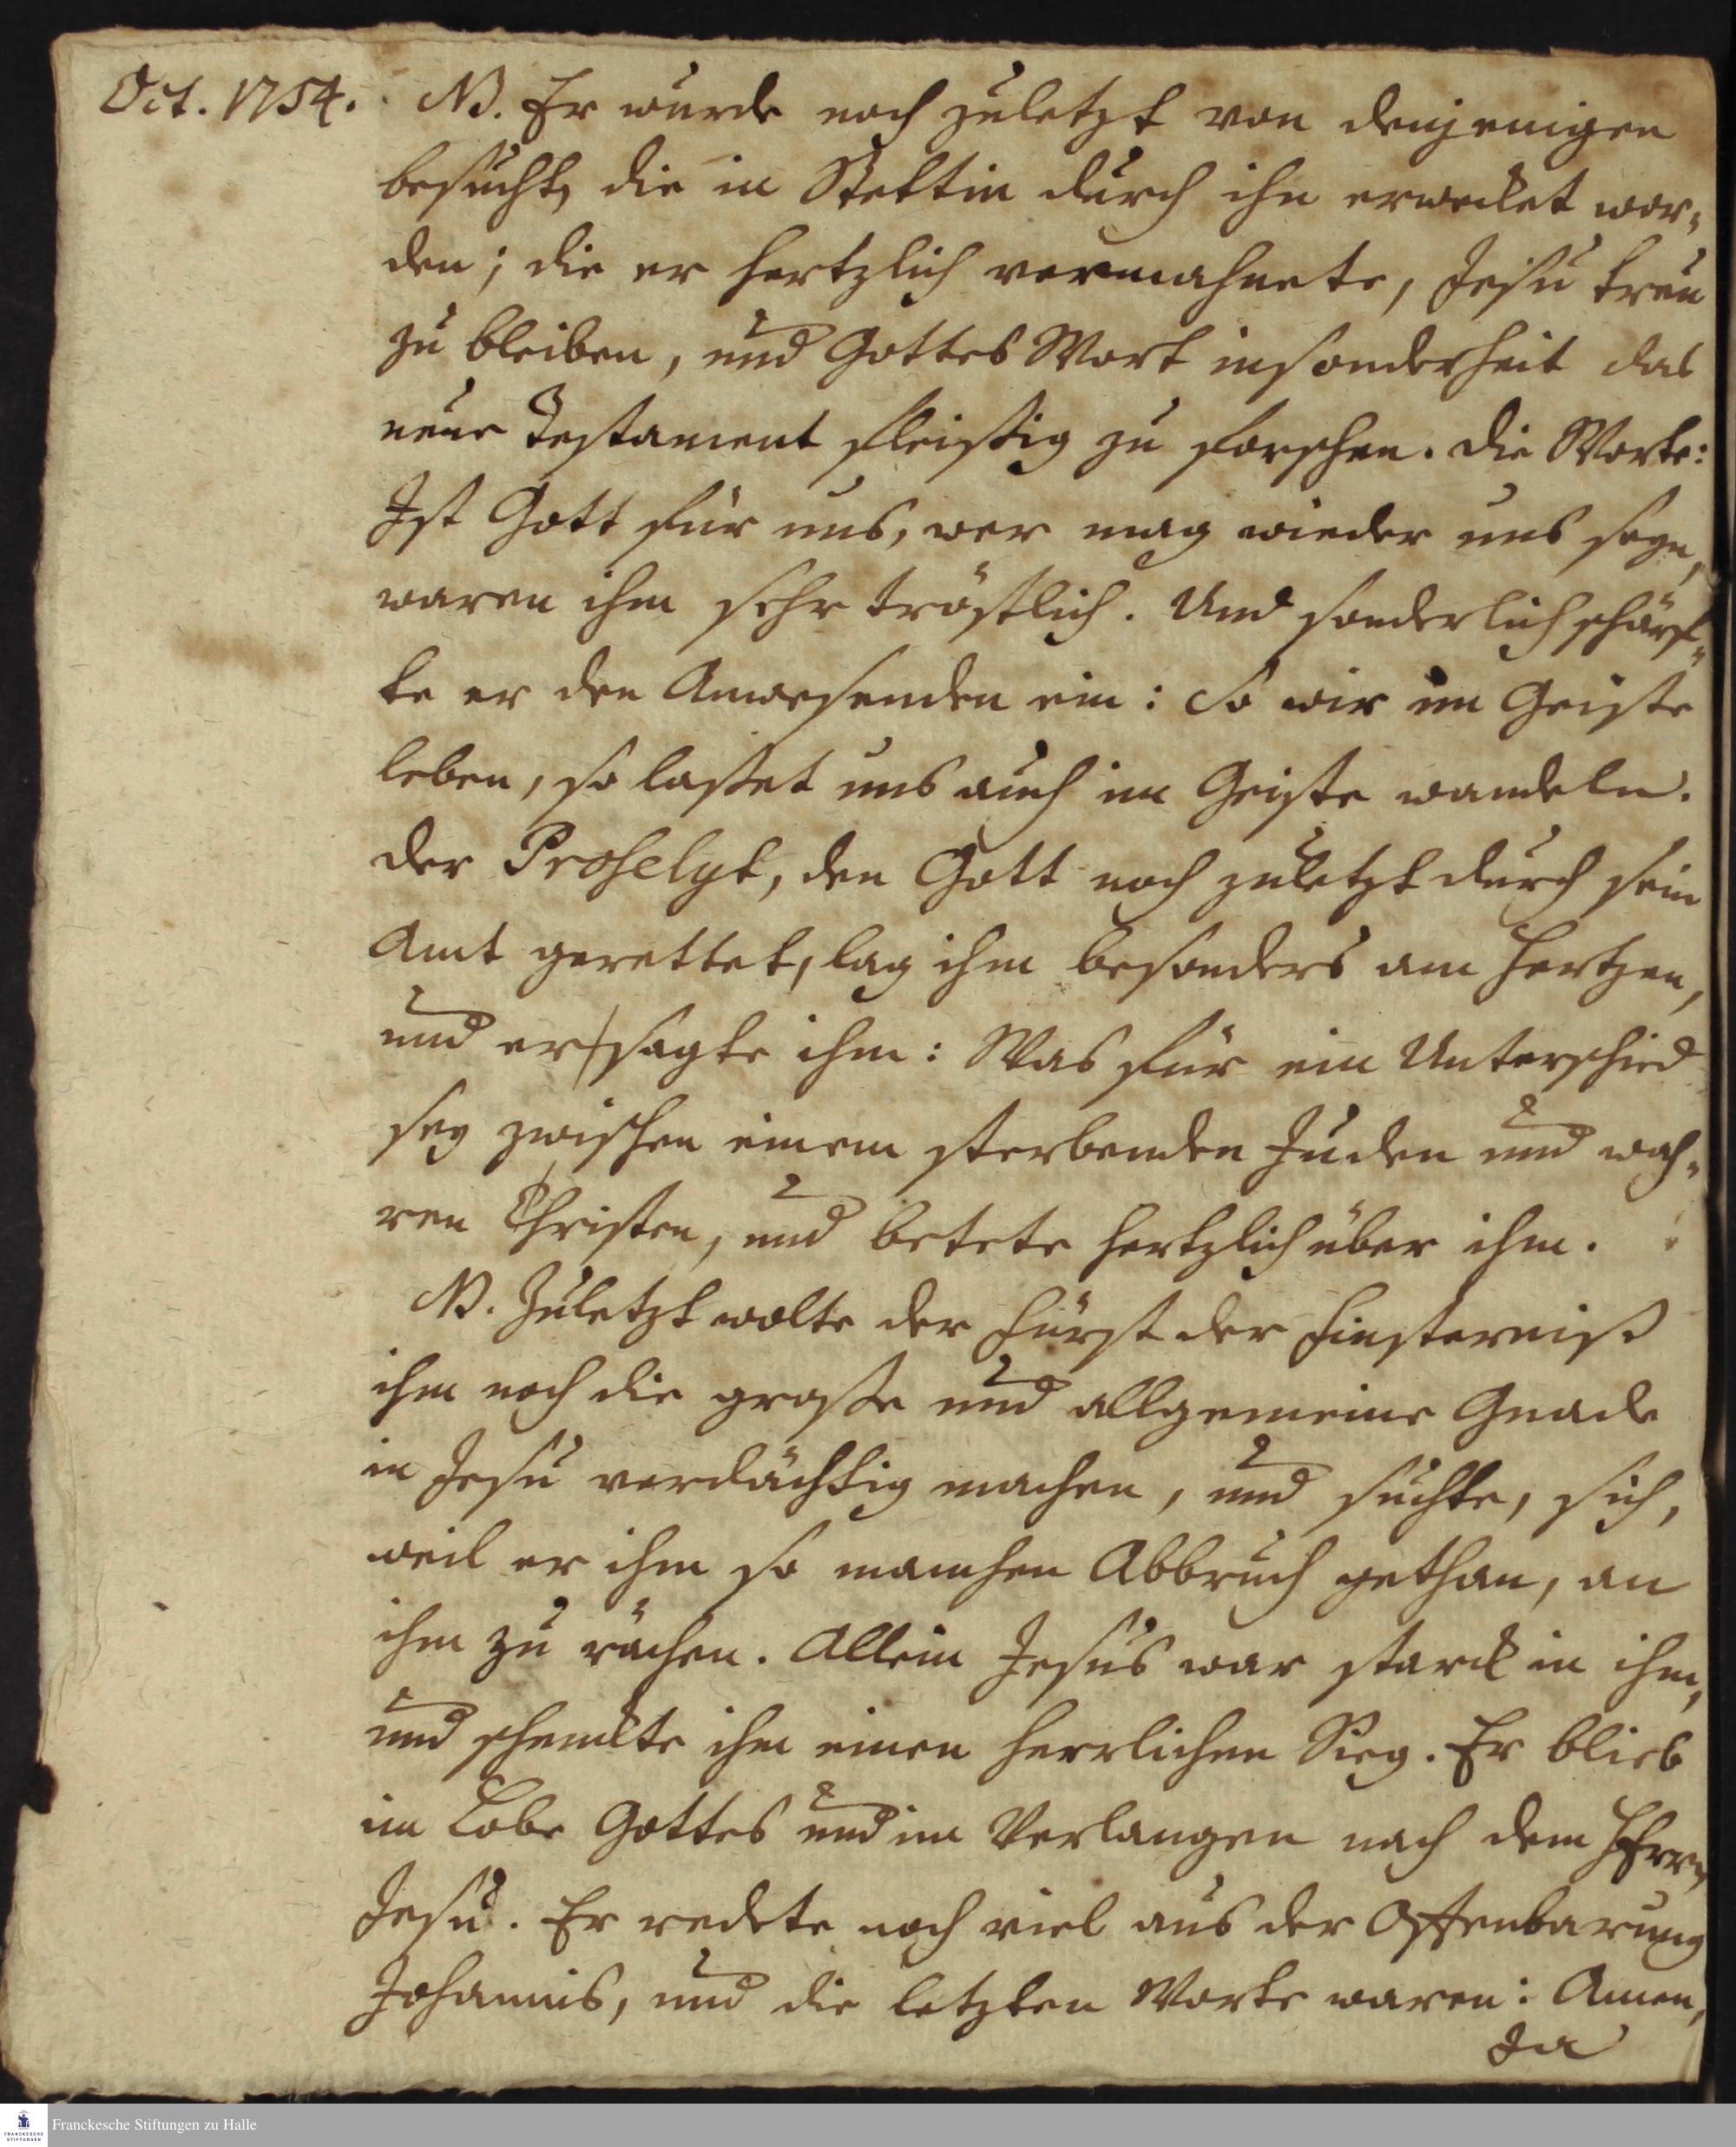 Oct. 1754.
NB. Er wurde noch zuletzt von denjenigen
besucht, die in Stettin durch ihn erwecket wor-
den; die er hertzlich vermahnete, Jesu treu
zu bleiben, und Gottes Wort insonderheit das
neue Testament fleißig zu forschen. Die Worte:
Ist Gott für uns, wer mag wieder uns seyn,
waren ihm sehr tröstlich. Und sonderlich schärf-
te er den Anwesenden ein: So wir im Geiste
leben, so laßet uns auch im Geiste wandeln.
Der Proselyt, den Gott noch zuletzt durch sein
Amt gerettet, lag ihm besonders am Hertzen,
und er sagte ihm: Was für ein Unterschied
sey zwischen einem sterbenden Juden und wah-
ren Christen, und betete hertzlich über ihm.
NB. Zuletzt wolte der Fürst der Finsterniß
ihm noch die große und allgemeine Gnade
in Jesu verdächtig machen, und suchte, sich,
weil er ihm so manchen Abbruch gethan, an
ihm zu rächen. Allein Jesus war starck in ihm,
und schenckte ihm einen herrlichen Sieg. Er blieb
im Lobe Gottes und im Verlangen nach dem HErrn
Jesu. Er redete noch viel aus der Offenbarung
Johannis, und die letzten Worte waren: Amen,
Ja
Franckesche Stiftungen zu Halle
FRANCKESCHE
STIFTUNGEN